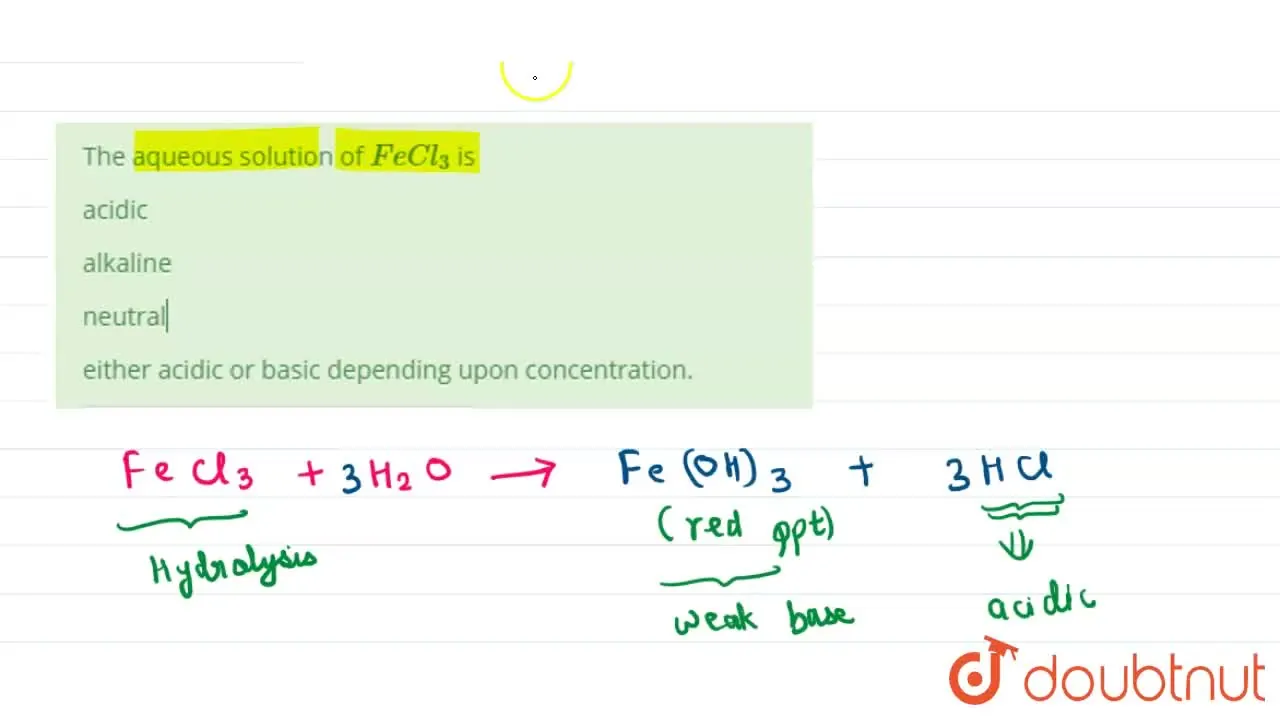 The aqueous solution of FeCl₃ is
acidic
alkaline
neutral
either acidic or basic depending upon concentration.
FeCl₃ + 3H₂O → Fe(OH)₃ + 3HCl
(red ppt)
Hydrolysis
weak base
acidic
doubtnut